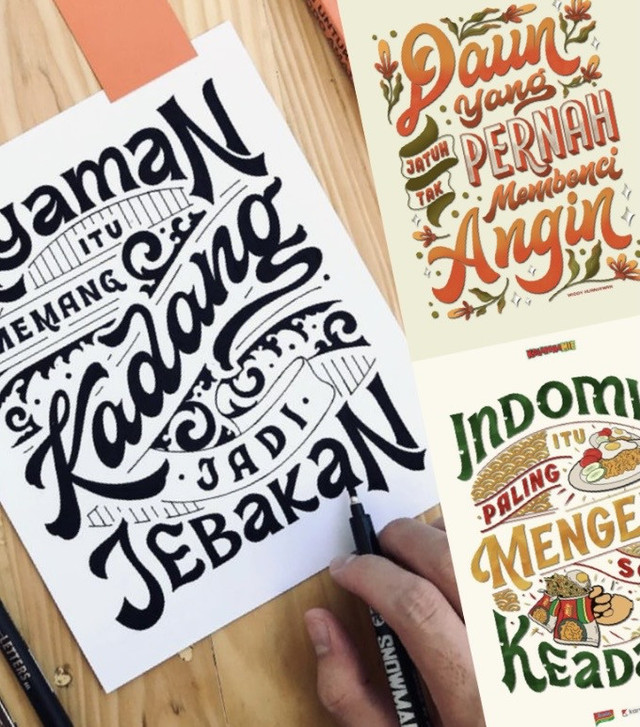 yaman
ITU
MEMANG
Kadang
JADI
JEBAKAN
Daun
yang
JATUH
TAK
PERNAH
Membenci
Angin
INDOMI
ITU
PALING
MENGE
KEADA
SNOWMAN
LETTERS